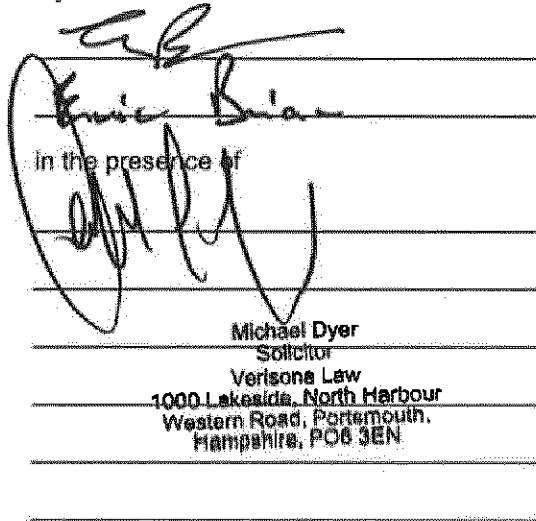 Brian
in the presence of
Michael Dyer
Solicitor
Verisona Law
1000 Lakeside, North Harbour
Western Road, Portsmouth,
Hampshire, PO6 3EN